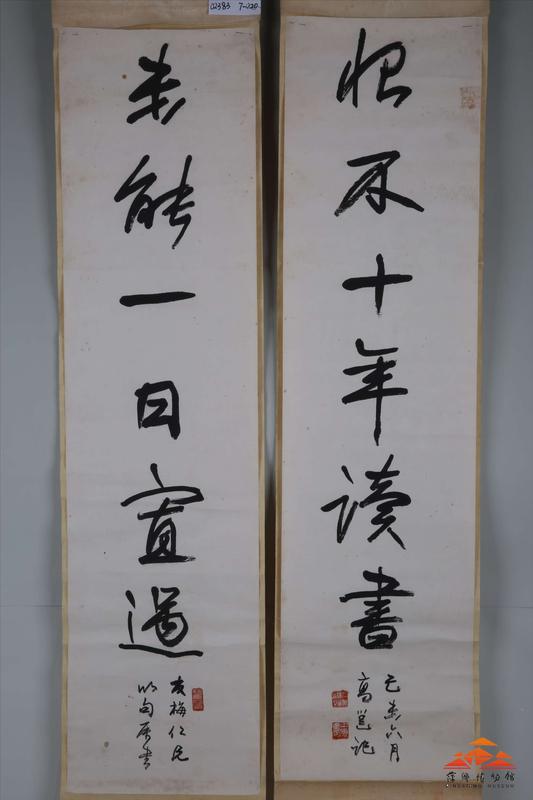 02383 7-020
恨不十年讀書
己未六月
高邕記
未能一日寡過
友梅仁兄
以句屬書
博物館
MUSEUM